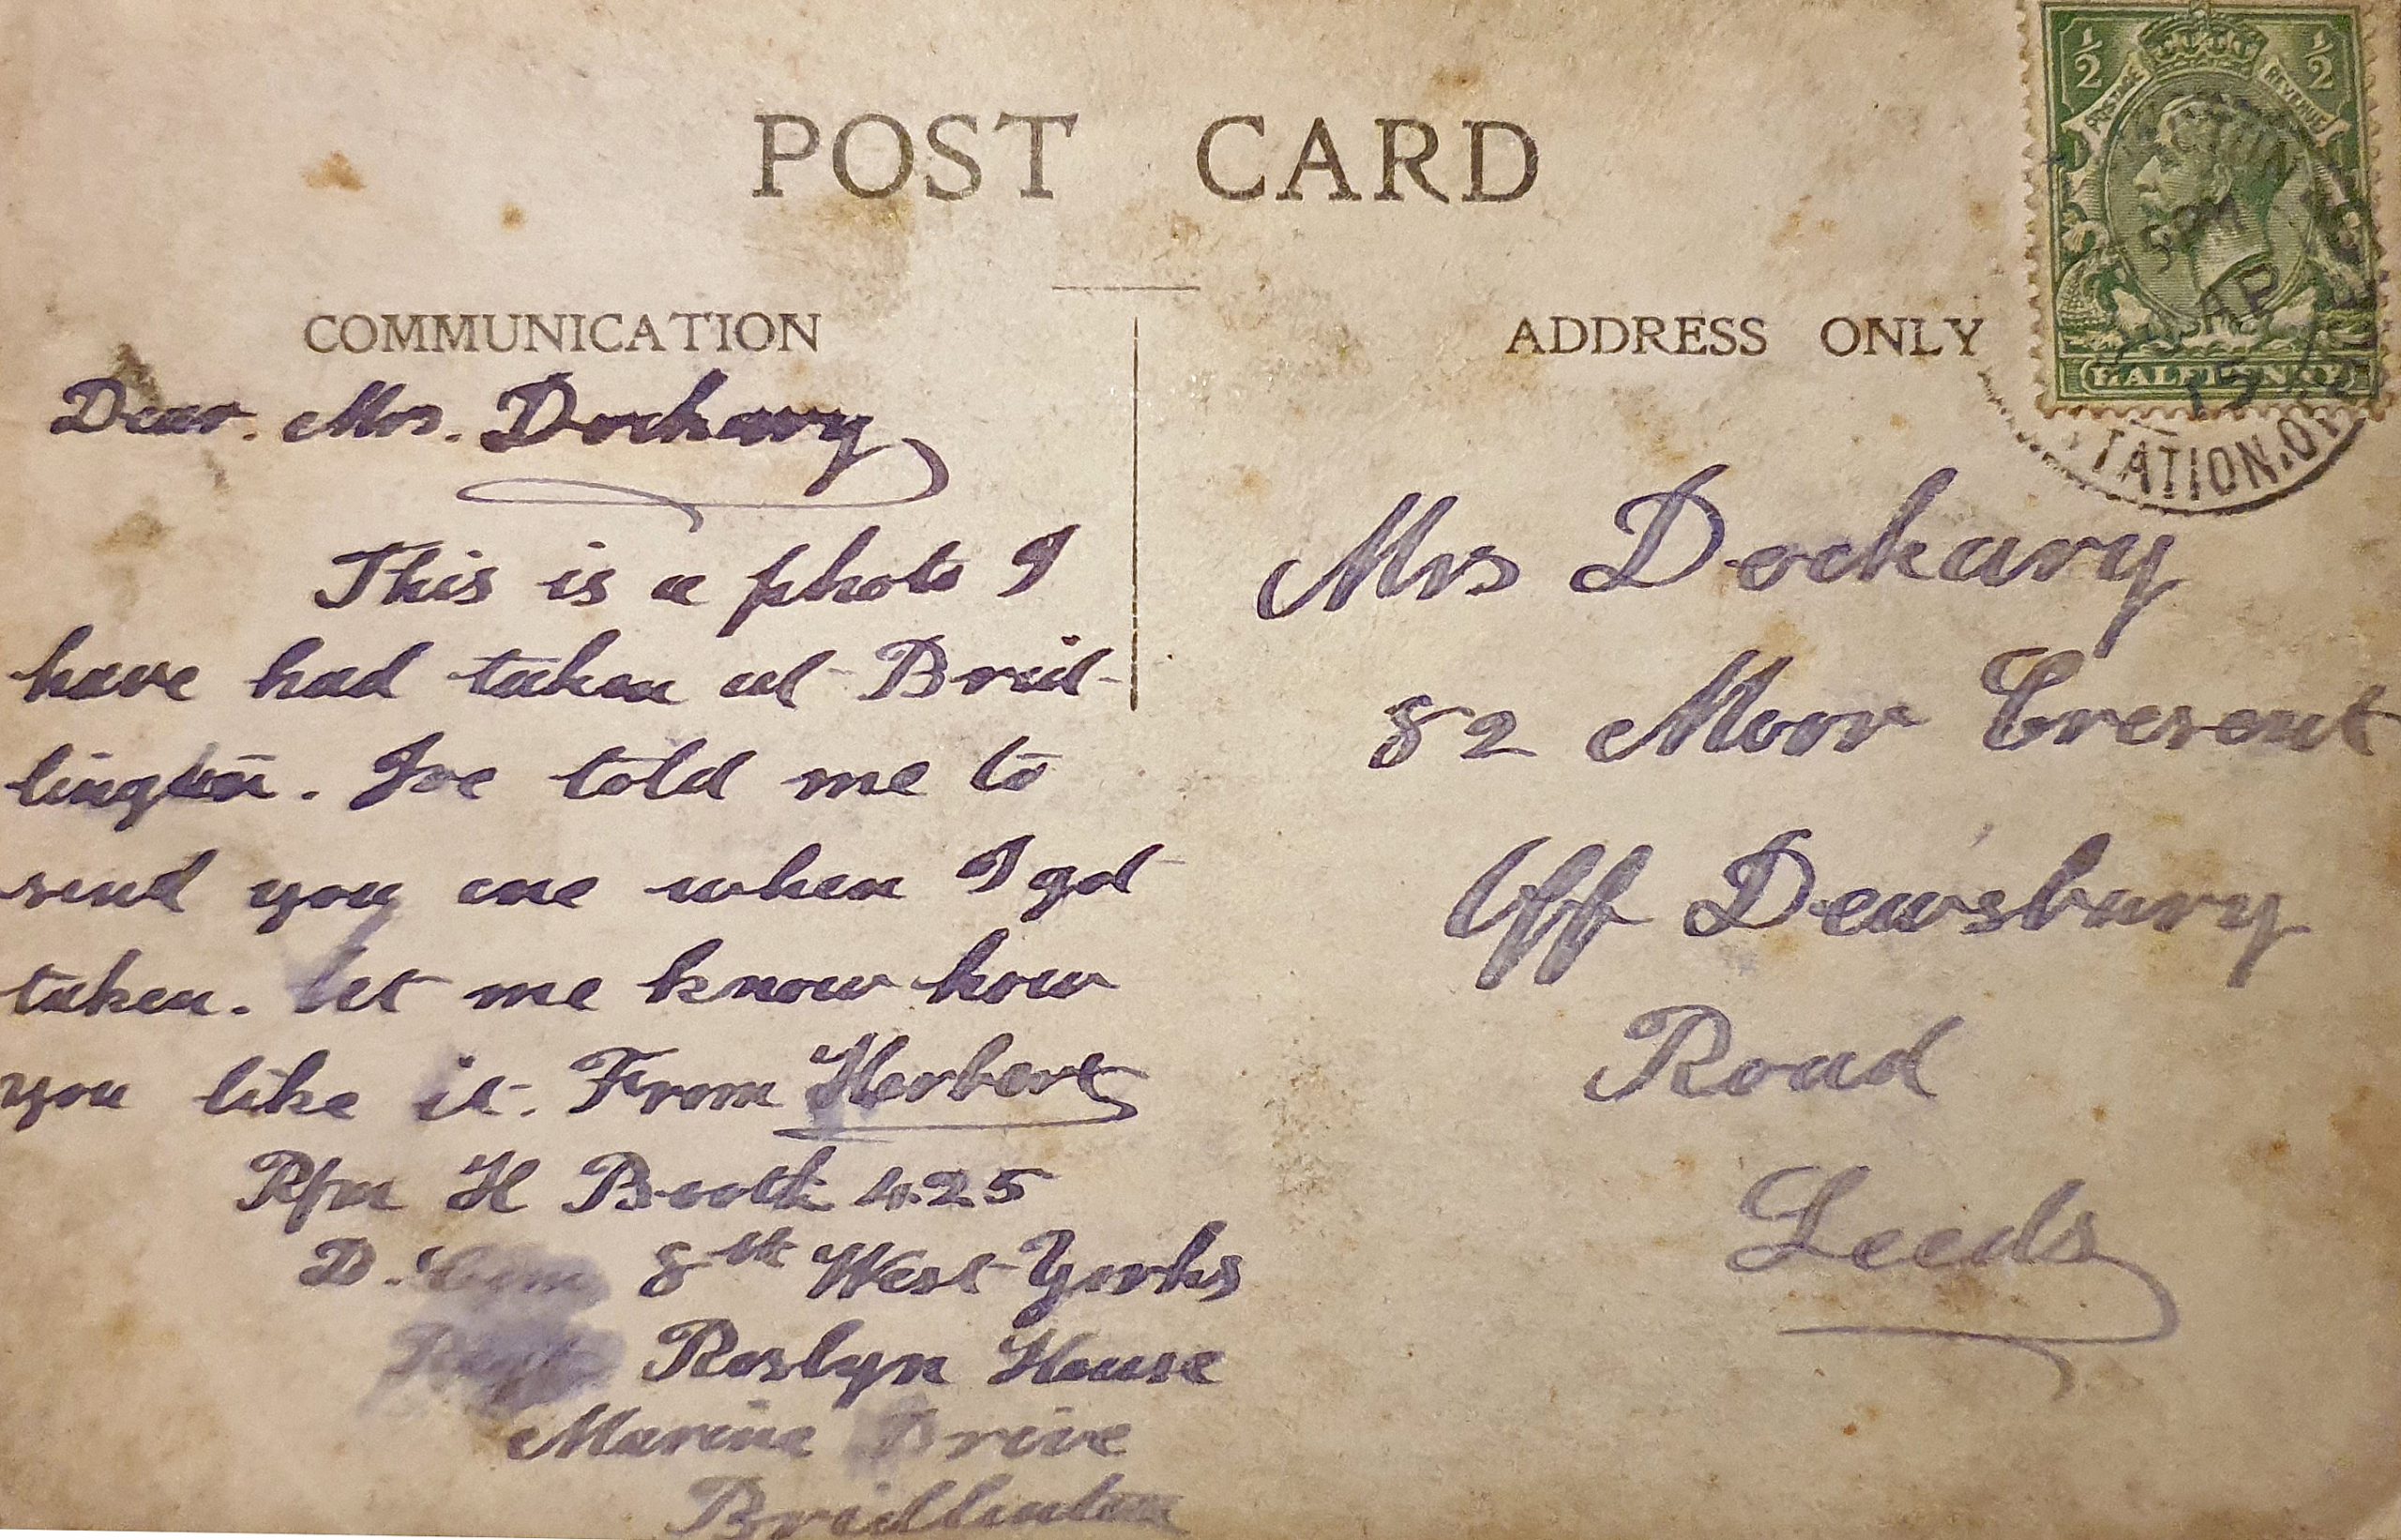 POST CARD
COMMUNICATION
ADDRESS ONLY
½ ½
POSTAGE REVENUE
5 PM
AP
15
HALFPENNY
STATION.OFF
Dear. Mrs. Dockary
This is a photo I
have had taken at Brid-
lington. Joe told me to
send you one when I got
taken. let me know how
you like it. From Herbert
Rfm H Booth 425
D. Com 8th West Yorks
Roslyn House
Marine Drive
Bridlinton
Mrs Dockary
82 Moor Cresent
Off Dewsbury
Road
Leeds